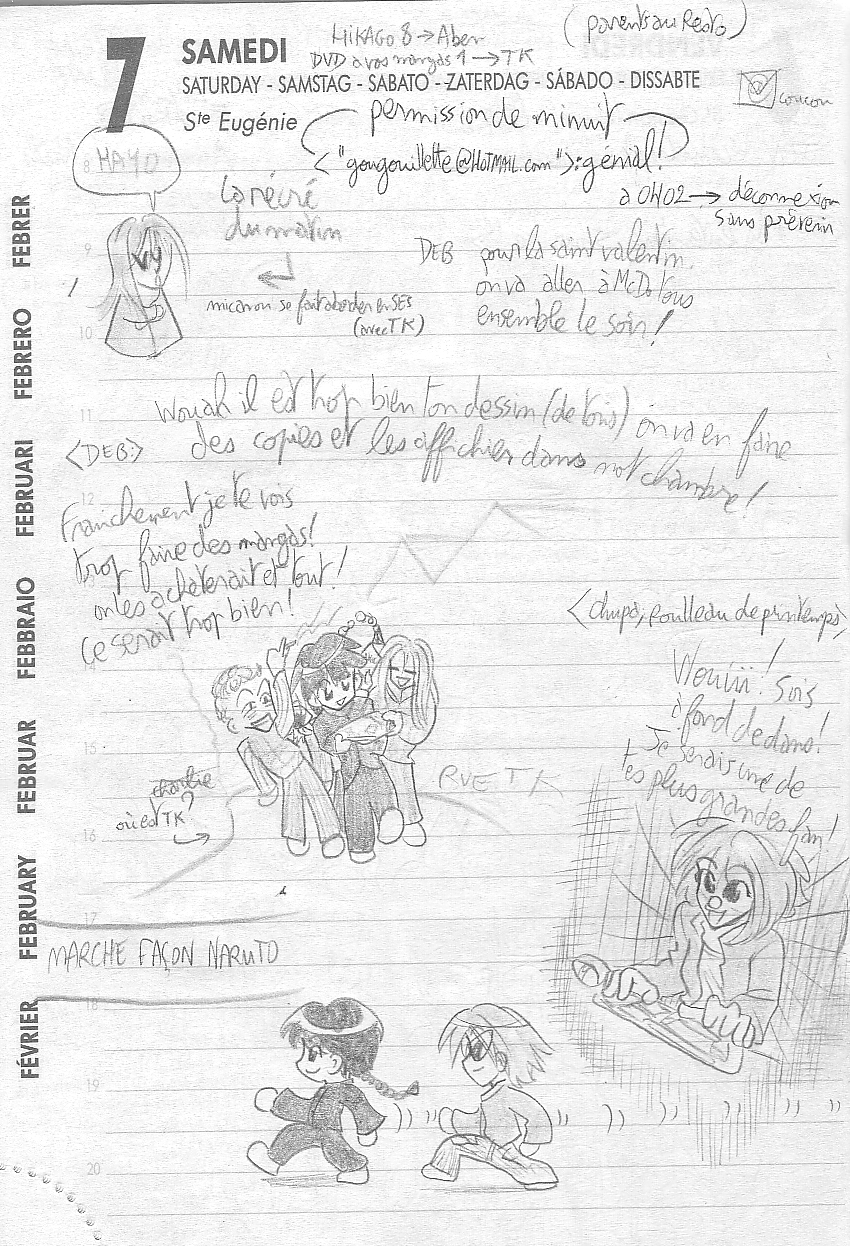 7
SAMEDI
SATURDAY - SAMSTAG - SABATO - ZATERDAG - SÁBADO - DISSABTE
Ste Eugénie
HIKAGO 8 → Aber
DVD à vos mangas 1 → TK
(parents au Resto)
coucou
permission de minuit
< "gougouillette@HOTMAIL.com">: génial!
à 0H02 → déconnexion
sans prévenir
HAYO
La récré
du matin
DEB pour la saint valentin
on va aller à McDo tous
ensemble le soir!
(avec TK)
Wouah il est trop bien ton dessin (de tous) on va en faire
<DEB:> des copies et les afficher dans not' chambre!
Franchement je te vois
trop faire des mangas!
on les achèterait et tout!
Ce serait trop bien!
<chupa, roulleau de printemps>
Wouiii! Sois
à fond dedans!
Je serais une de
tes plus grandes fan!
où est TK?
RUE TK
MARCHE FAÇON NARUTO
FÉVRIER FEBRUARY FEBRUAR FEBBRAIO FEBRUARI FEBRERO FEBRER
8
9
10
11
12
13
14
15
16
17
18
19
20